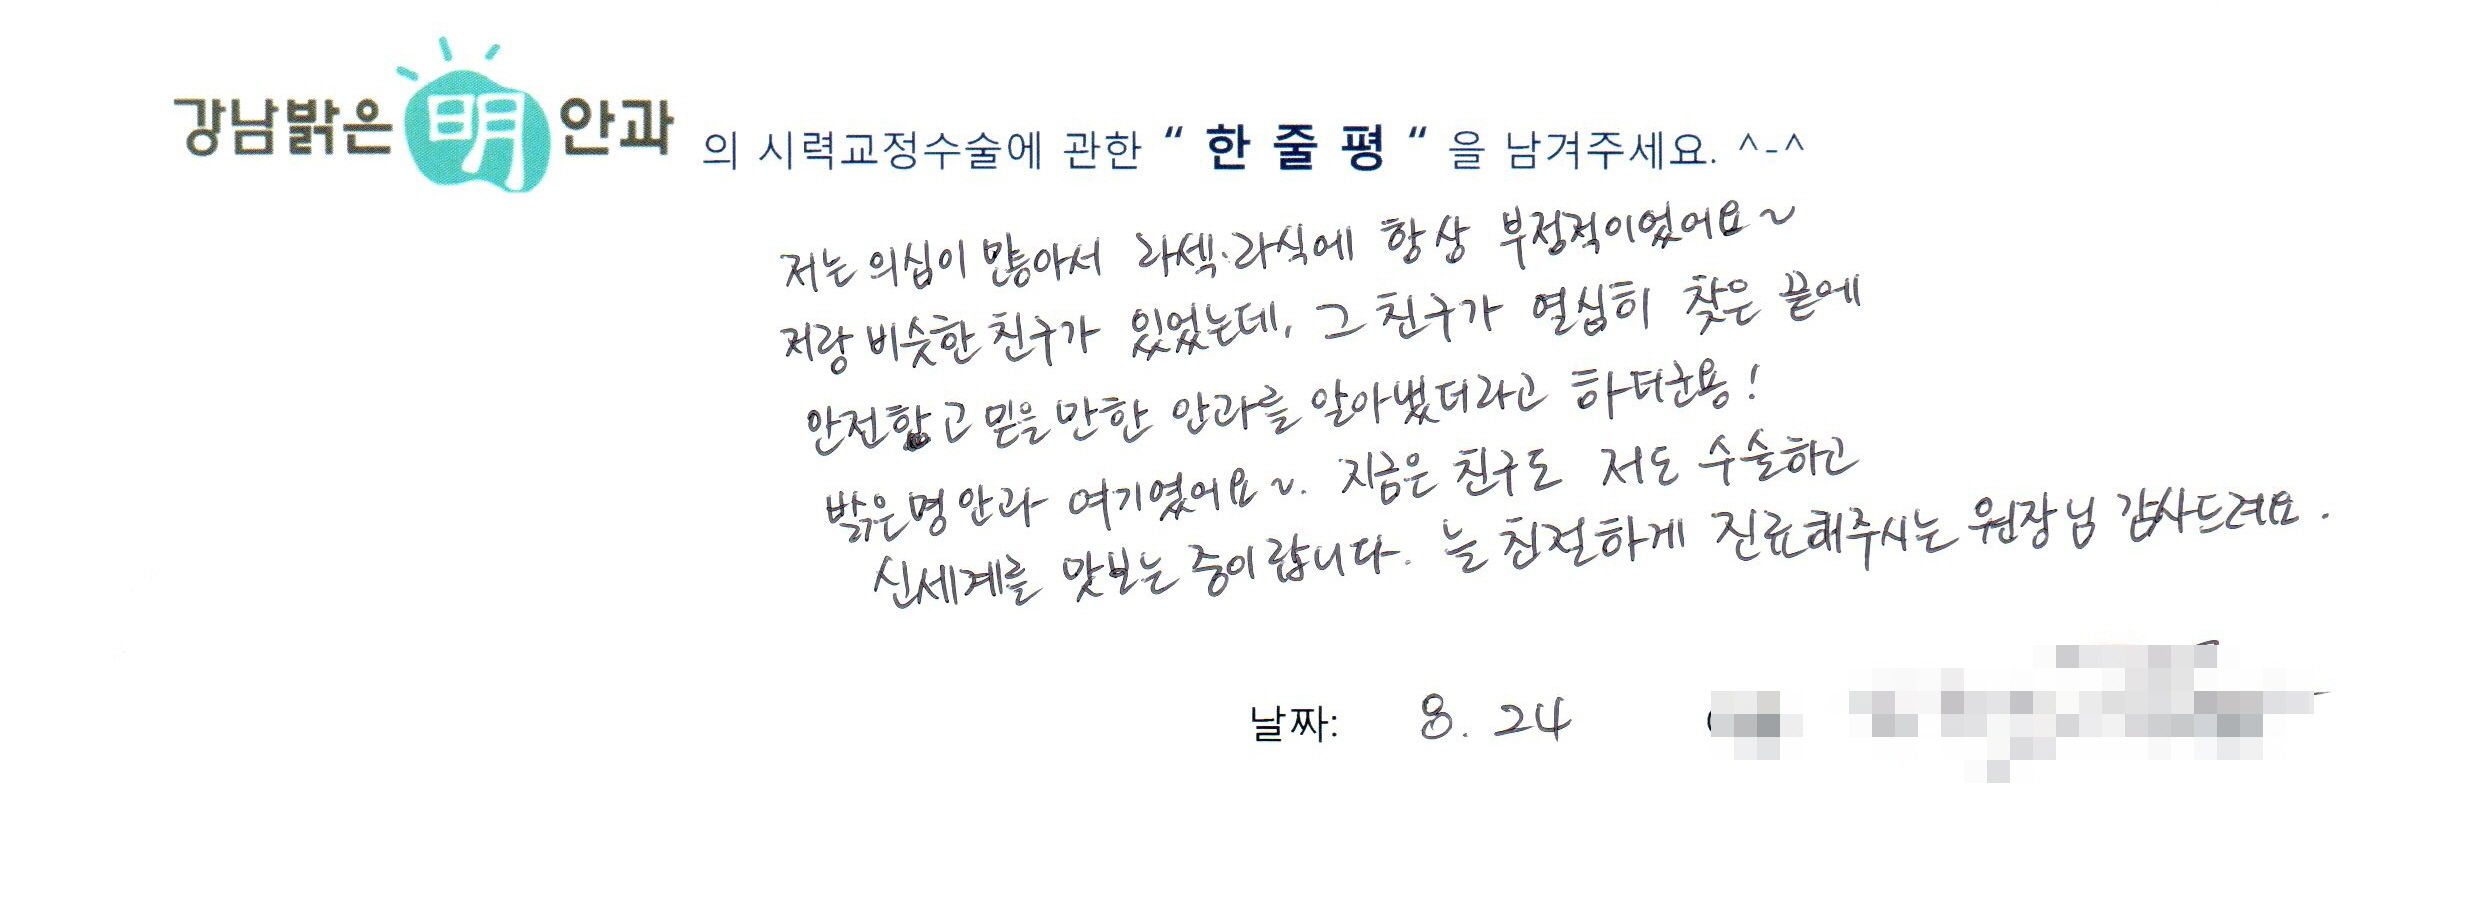 강남밝은明안과 의 시력교정수술에 관한 “ 한 줄 평 “ 을 남겨주세요. ^-^
저는 의심이 많아서 라섹·라식에 항상 부정적이었어요~
저랑 비슷한 친구가 있었는데, 그 친구가 열심히 찾은 끝에
안전하고 믿을만한 안과를 알아냈더라고 하더군용!
밝은명안과 여기였어요~. 지금은 친구도 저도 수술하고
신세계를 맛보는 중이랍니다. 늘 친절하게 진료해주시는 원장님 감사드려요.
날짜: 8. 24